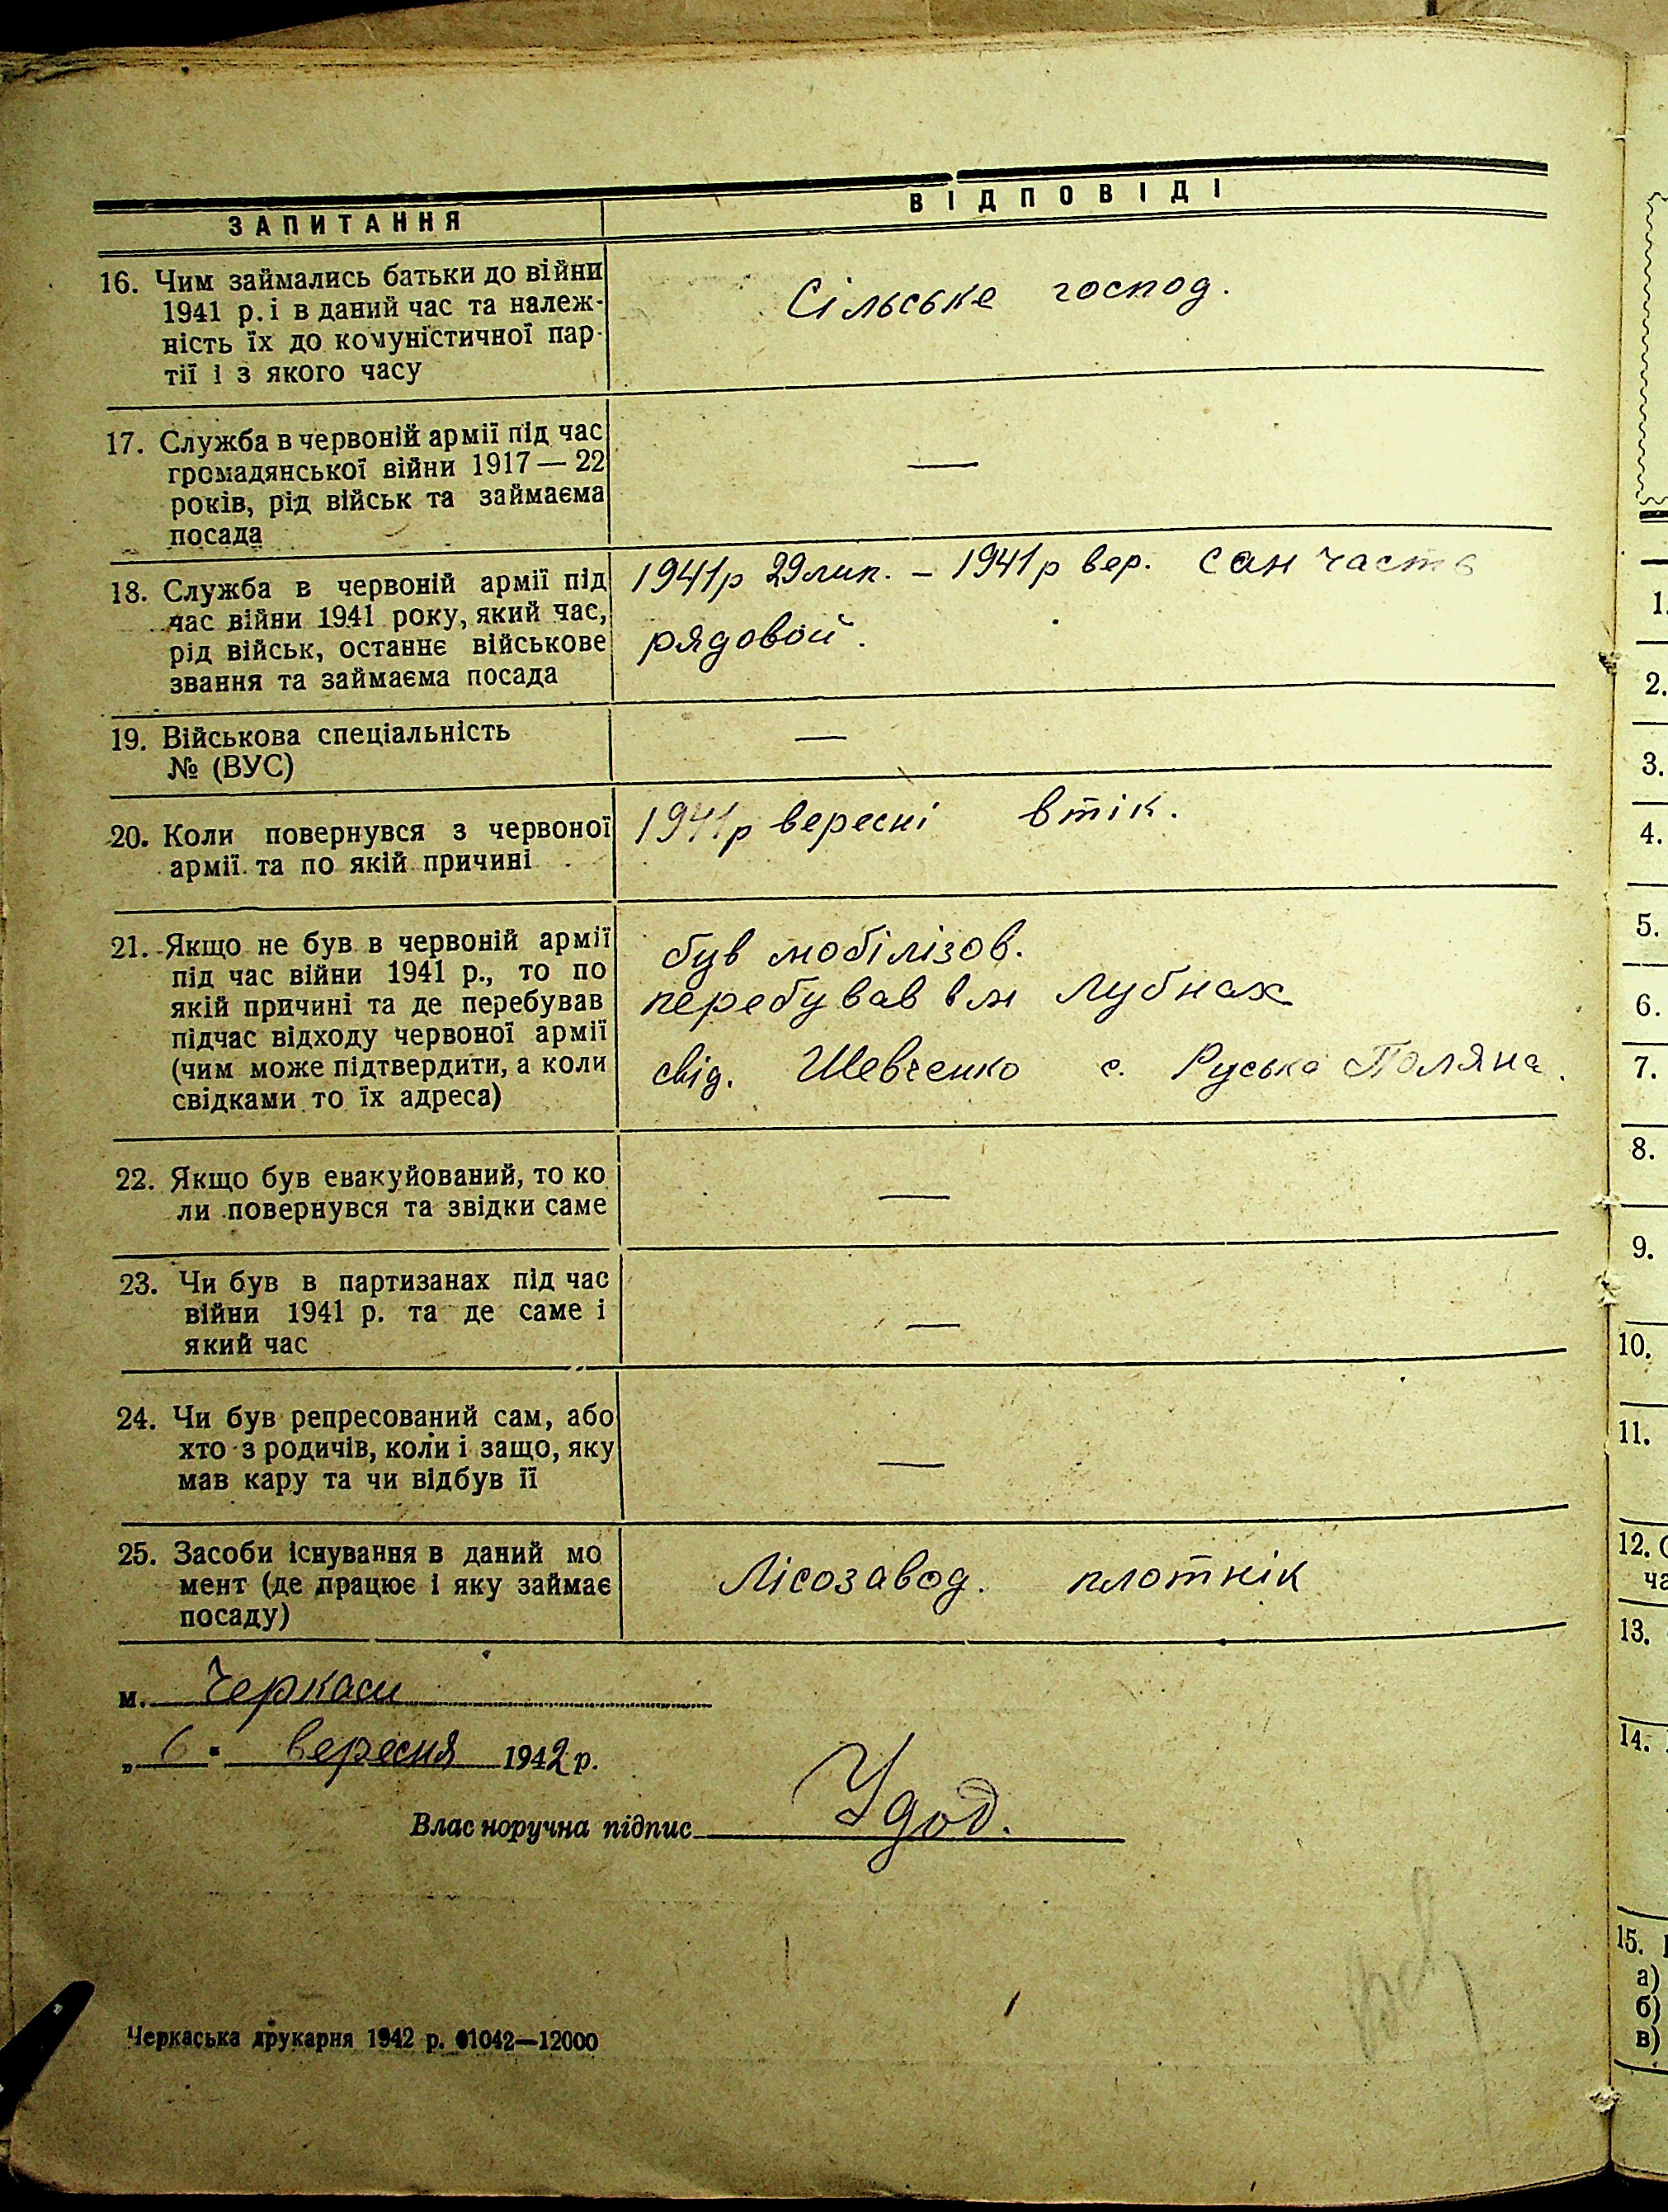 ЗАПИТАННЯ
ВІДПОВІДІ
16. Чим займались батьки до війни
1941 р. і в даний час та належ-
ність їх до комуністичної пар-
тії і з якого часу
Сільське господ.
17. Служба в червоній армії під час
громадянської війни 1917 — 22
років, рід військ та займаєма
посада
—
18. Служба в червоній армії під
час війни 1941 року, який час,
рід військ, останнє військове
звання та займаєма посада
1941р 29 лип. – 1941р вер. сан часть
рядовой.
19. Військова спеціальність
№ (ВУС)
—
20. Коли повернувся з червоної
армії та по якій причині
1941р вересні втік.
21. Якщо не був в червоній армії
під час війни 1941 р., то по
якій причині та де перебував
підчас відходу червоної армії
(чим може підтвердити, а коли
свідками то їх адреса)
був мобілізов.
перебував в м Лубнах
свід. Шевченко с. Руська Поляна.
22. Якщо був евакуйований, то ко
ли повернувся та звідки саме
—
23. Чи був в партизанах під час
війни 1941 р. та де саме і
який час
—
24. Чи був репресований сам, або
хто з родичів, коли і защо, яку
мав кару та чи відбув її
—
25. Засоби існування в даний мо
мент (де працює і яку займає
посаду)
Лісозавод. плотнік
м. Черкаси
„6" вересня 1942 р.
Влас норучна підпис Удод.
Черкаська друкарня 1942 р. 01042—12000
1.
2.
3.
4.
5.
6.
7.
8.
9.
10.
11.
12. С
ча
13.
14.
15.
а)
б)
в)